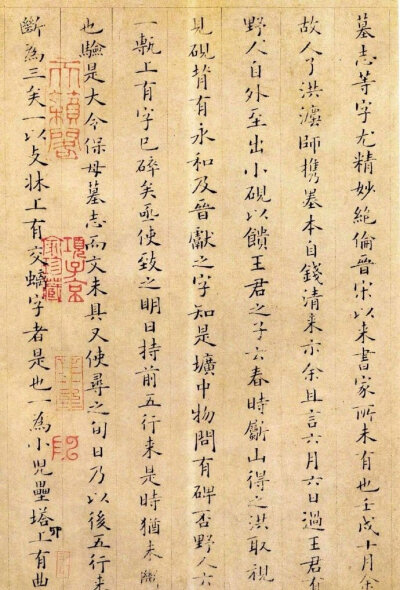 墓志等字尤精妙絕倫晉宋以来書家所未有也壬戌十月余
故人了洪師攜墨本自錢清来示余且言六月六日過王君有
野人自外至出小硯以饋王君之子云春時斸山得之洪取視
見硯背有永和及晉獻之字知是壙中物問有碑否野人云
一甎上有字已碎矣亟使致之明日持前五行来是時猶未斷
也驗是大令保母墓志而文未具又使尋之旬日乃以後五行来
斷為三矣一以支牀上有交螭字者是也一為小兒壘塔上有曲
天籟閣
項子京家珍藏